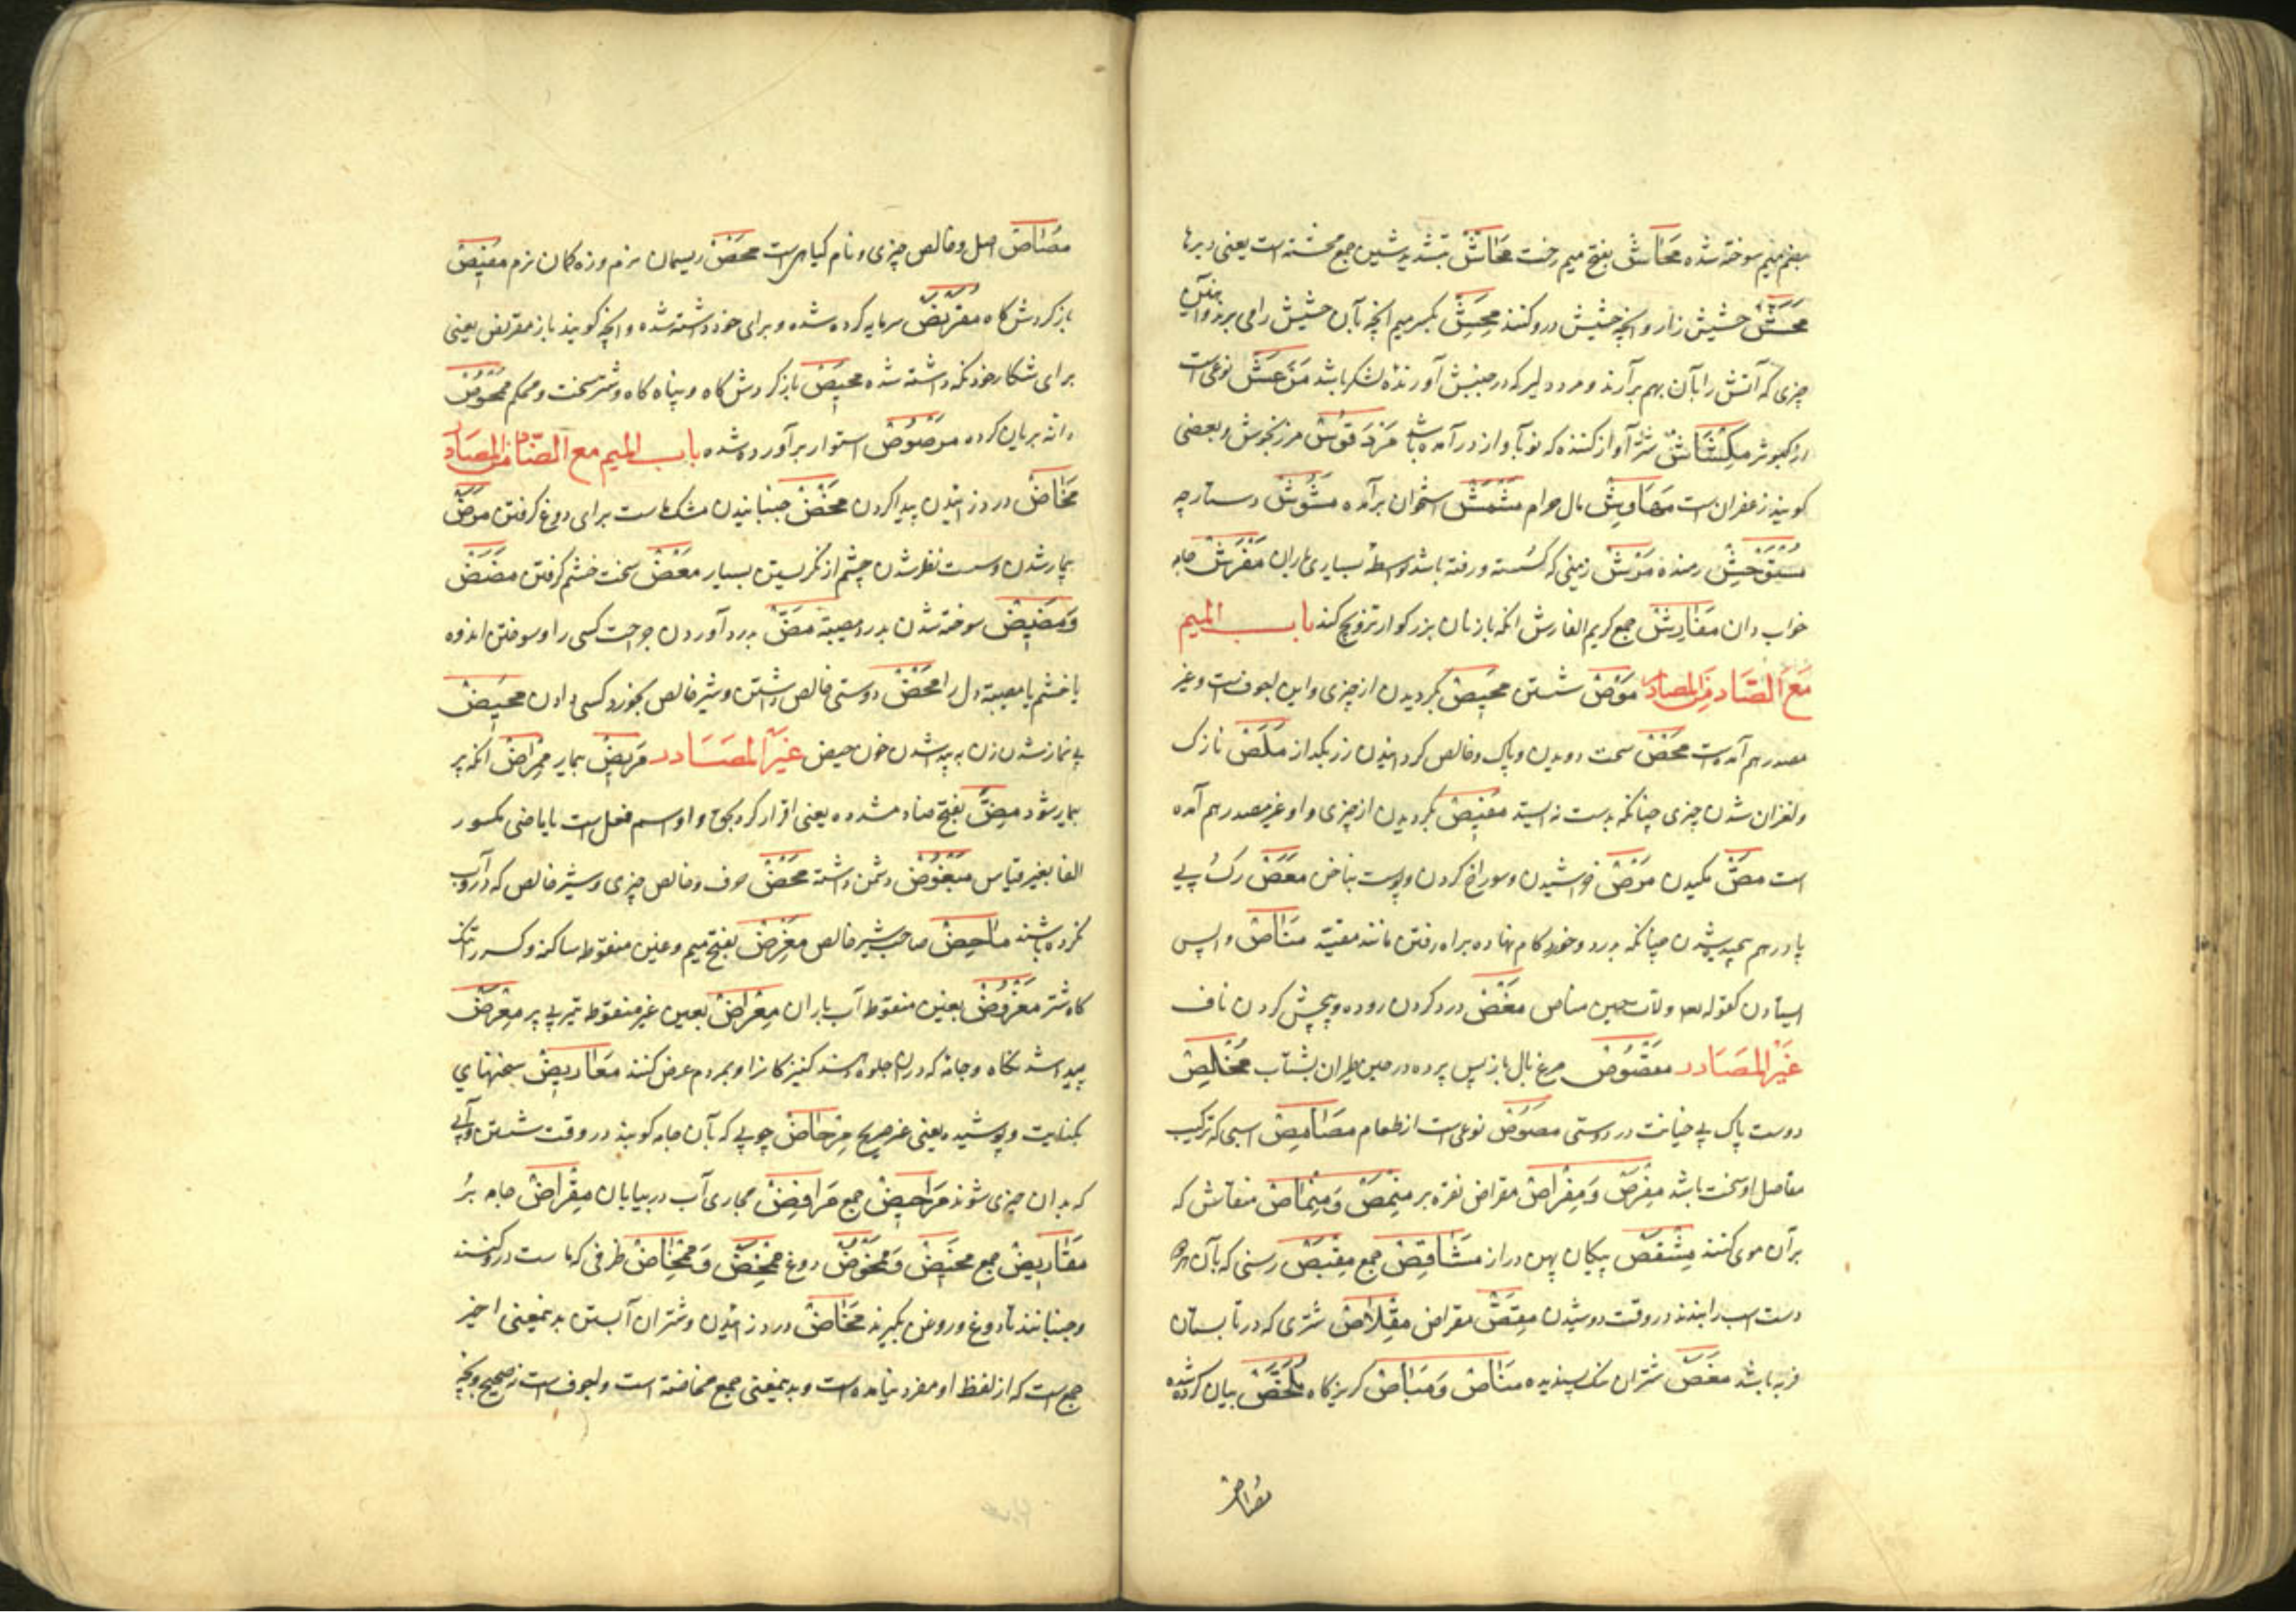 بضم میم سوخته شده مَحَاش بفتح میم رخت مَحَاشّ بتشدید شین جمع محشته است یعنی دبرها
مَحَشّ حشیش زار و انچه حشیش درو کنند مِحَشّ بکسر میم انچه بآن حشیش را می برند و آن
چیزی که آتش را بآن بهم برآرند و مرد دلیر که در جنبش آورنده لشکر باشد مَرْعَش نوعی است
از کبوتر مِکْشَاش شتر آواز کننده که نو بآواز در آمده باشد مَرْدَقُوش مرزنجوش و بعضی
کویند زعفران است مَهَاوِش مال حرام مُشَمَّش استخوان برآمده مَشُوش دستارچه
مُسْتَوْحِش رمنده مَرْش زمینی که کسسته و رفته باشد بواسطهٔ بسیاری باران مِفْرَش جامه
خواب دان مَفَارِش جمع کریم المفارش انکه بازنان بزرکوار تزویج کند باب المیم
مَعَ الصَّاد مِنَ المصادر مَوْص شستن مَحِیص بکردیدن از چیزی و این اجوف است و غیر
مصدر هم آمده است مَحْص سخت دویدن و پاک و خالص کردانیدن زر بکداز مَلَص نازک
و لغزان شدن چیزی چنانکه بدست نه ایستد مَفِیص بکردیدن از چیزی و او غیر مصدر هم آمده
است مَصّ مکیدن مَرْص خراشیدن و سوراخ کردن پوست بناخن مَعَص رک پی
پا درهم پیچیده شدن چنانکه بدرد و خرد کام نهاده براه رفتن مانند مقید مَنَاص واپس
ایستادن کقوله تعالی ولات حین مناص مَغْص درد کردن روده و پیچش کردن ناف
غَیْرُ المَصَادر مَقْصُوص مرغ بال باز پس پرده در حین طیران بشتاب مُخْلِص
دوست پاک بی خیانت در دوستی مَصُوص نوعی است از طعام مَصَامِص اسپی که ترکیب
مفاصل او سخت باشد مِفْرَص وَ مِفْرَاص مقراض نقره بر مِنْمَص وَ مِنْمَاص منقاش که
بر آن موی کنند مِشْقَص پیکان پهن دراز مَشَاقِص جمع مِقْبَص رسنی که بآن هر دو
دست اسب را بندند در وقت دوشیدن مِقَصّ مقراض مِقْلَاص شتری که در تابستان
فربه باشد مَغَص شتران نیک پسندیده مَنَاص وَ مَبَاص کریزکاه مُلَخَّص بیان کرده شده
مصاص
مُصَاص اصل و خالص چیزی و نام کیاهی است مَحْص ریسمان نرم و زه کمان نرم مَفِیص
باز کردش کاه مُقَرْنَص سرمایه کرده شده و برای خود داشته شده و انچه کویند باز مقرنص یعنی
برای شکار خود نکه داشته شده مَحِیص باز کردش کاه و پناه کاه و شتر سخت و محکم مَمْحُوص
دانه بریان کرده مَرْصُوص استوار برآورده شده باب المیم مع الضاد من المصادر
مَخَاض درد زائیدن پیدا کردن مَخْض جنبانیدن مشک ماست برای دوغ کرفتن مَرَض
بیمار شدن و سست نظر شدن چشم از نکریستن بسیار مَعَض سخت خشم کرفتن مَضَض
وَ مَضِیض سوخته شدن بدرد مصیبت مَضّ بدرد آوردن جراحت کسی را و سوختن اندوه
یا خشم یا مصیبة دل را مَحْض دوستی خالص داشتن و شیر خالص بخورد کسی دادن مَحِیض
بی نماز شدن زن به پیدا شدن خون حیض غَیْرُ المَصَادر مَرِیض بیمار مِمْرَاض انکه پر
بیمار شود مِضّ بفتح ضاد مشدده یعنی اقرار کرد بحق و او اسم فعل است بابای ماضی مکسور
الفا بغیر قیاس مَبْغُوض دشمن داشته مَحْض صرف و خالص چیزی و شیر خالص که در آب
نکرده باشند مَاحِض صاحب شیر خالص مَغْرِض بفتح میم و غین منقوطه ساکنه و کسر را تنک
کاه شتر مَغْرُوض بغین منقوطه آب باران مِعْرَاض بعین غیر منقوطه تیر بی پر مِعْرَض
پیدا شدنکاه و جامه که در ان جلوه دهند کنیزکان را و بمردم عرض کنند مَعَارِیض سخنهای
بکنایت و پوشیده یعنی غیر صریح مِرْحَاض چوبی که بآن جامه کوبند در وقت شستن و آبی
که بدان چیزی شوند مَرَاحِیض جمع مَرَافِض مجاری آب در بیابان مِقْرَاض جامه بُر
مَقَارِیض جمع مَخِیض وَ مَمْخُوض دوغ مِمْخَض وَ مِمْخَاض ظرفی که ماست در و کنند
و جنبانند تا دوغ و روغن بکیرند مَخَاض درد زائیدن و شتران آبستن بدینمعنی اخیر
جمع است که از لفظ او مفرد نیامده است و بدینمعنی جمع مخاضة است و اجوف است نه صحیح و بچه